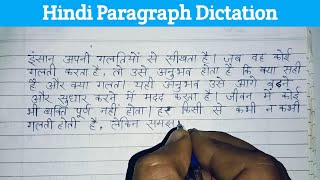 Hindi Paragraph Dictation
इंसान अपनी गलतियों से सीखता है। जब वह कोई
गलती करता है, तो उसे अनुभव होता है कि क्या सही
है और क्या गलत। यही अनुभव उसे आगे बढ़ने
और सुधार करने में मदद करता है। जीवन में कोई
भी व्यक्ति पूर्ण नहीं होता। हर किसी से कभी न कभी
गलती होती है, लेकिन समझ